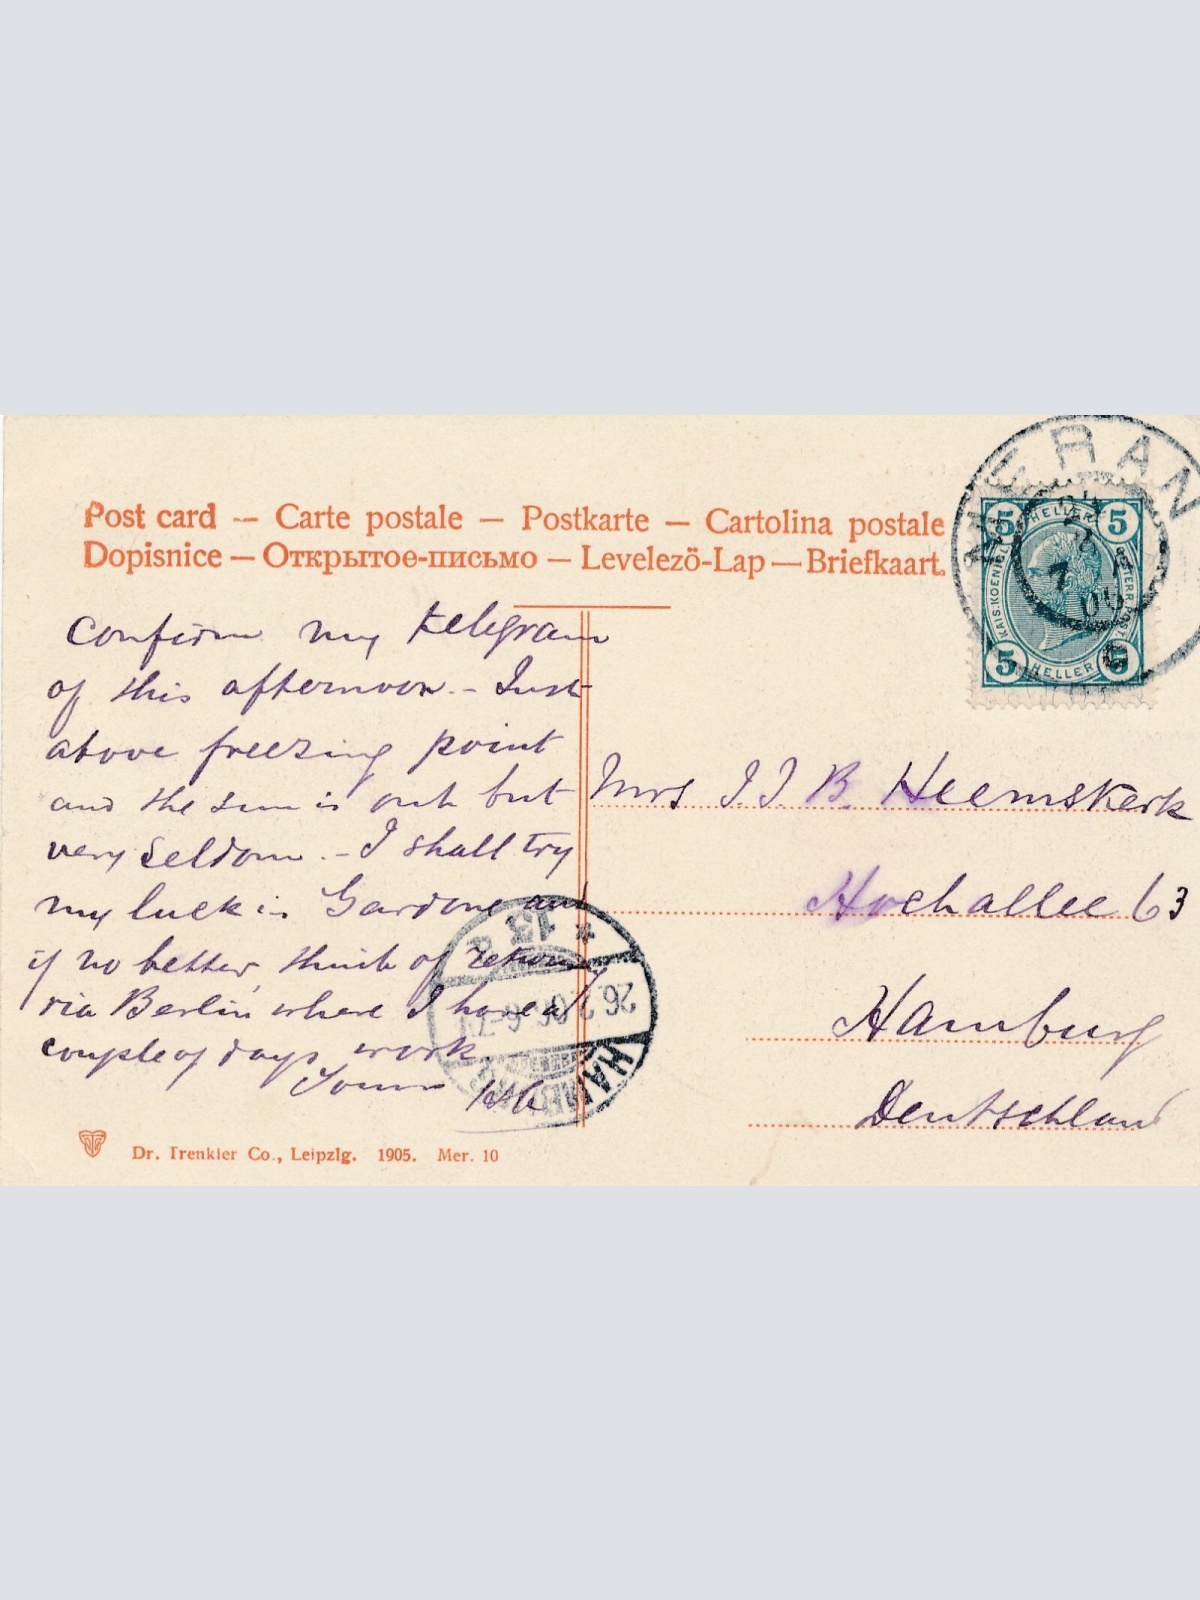 Post card — Carte postale — Postkarte — Cartolina postale
Dopisnice — Открытое-письмо — Levelezö-Lap — Briefkaart.
MERAN
5 HELLER 5
KAIS. KOENIGL. OESTERR. POST.
5 HELLER 5
Confirm my telegram
of this afternoon. - Just
above freezing point
and the sun is out but
very seldom. - I shall try
my luck in Gardone and
if no better, think of returning
via Berlin, where I have a
couple of days work.
Yours
Mrs J. J. B. Heemskerk
Hochallee 63
Hamburg
Deutschland
HAMBURG
26.2.06. 6-7
* 13
Dr. Trenkler Co., Leipzig. 1905. Mer. 10